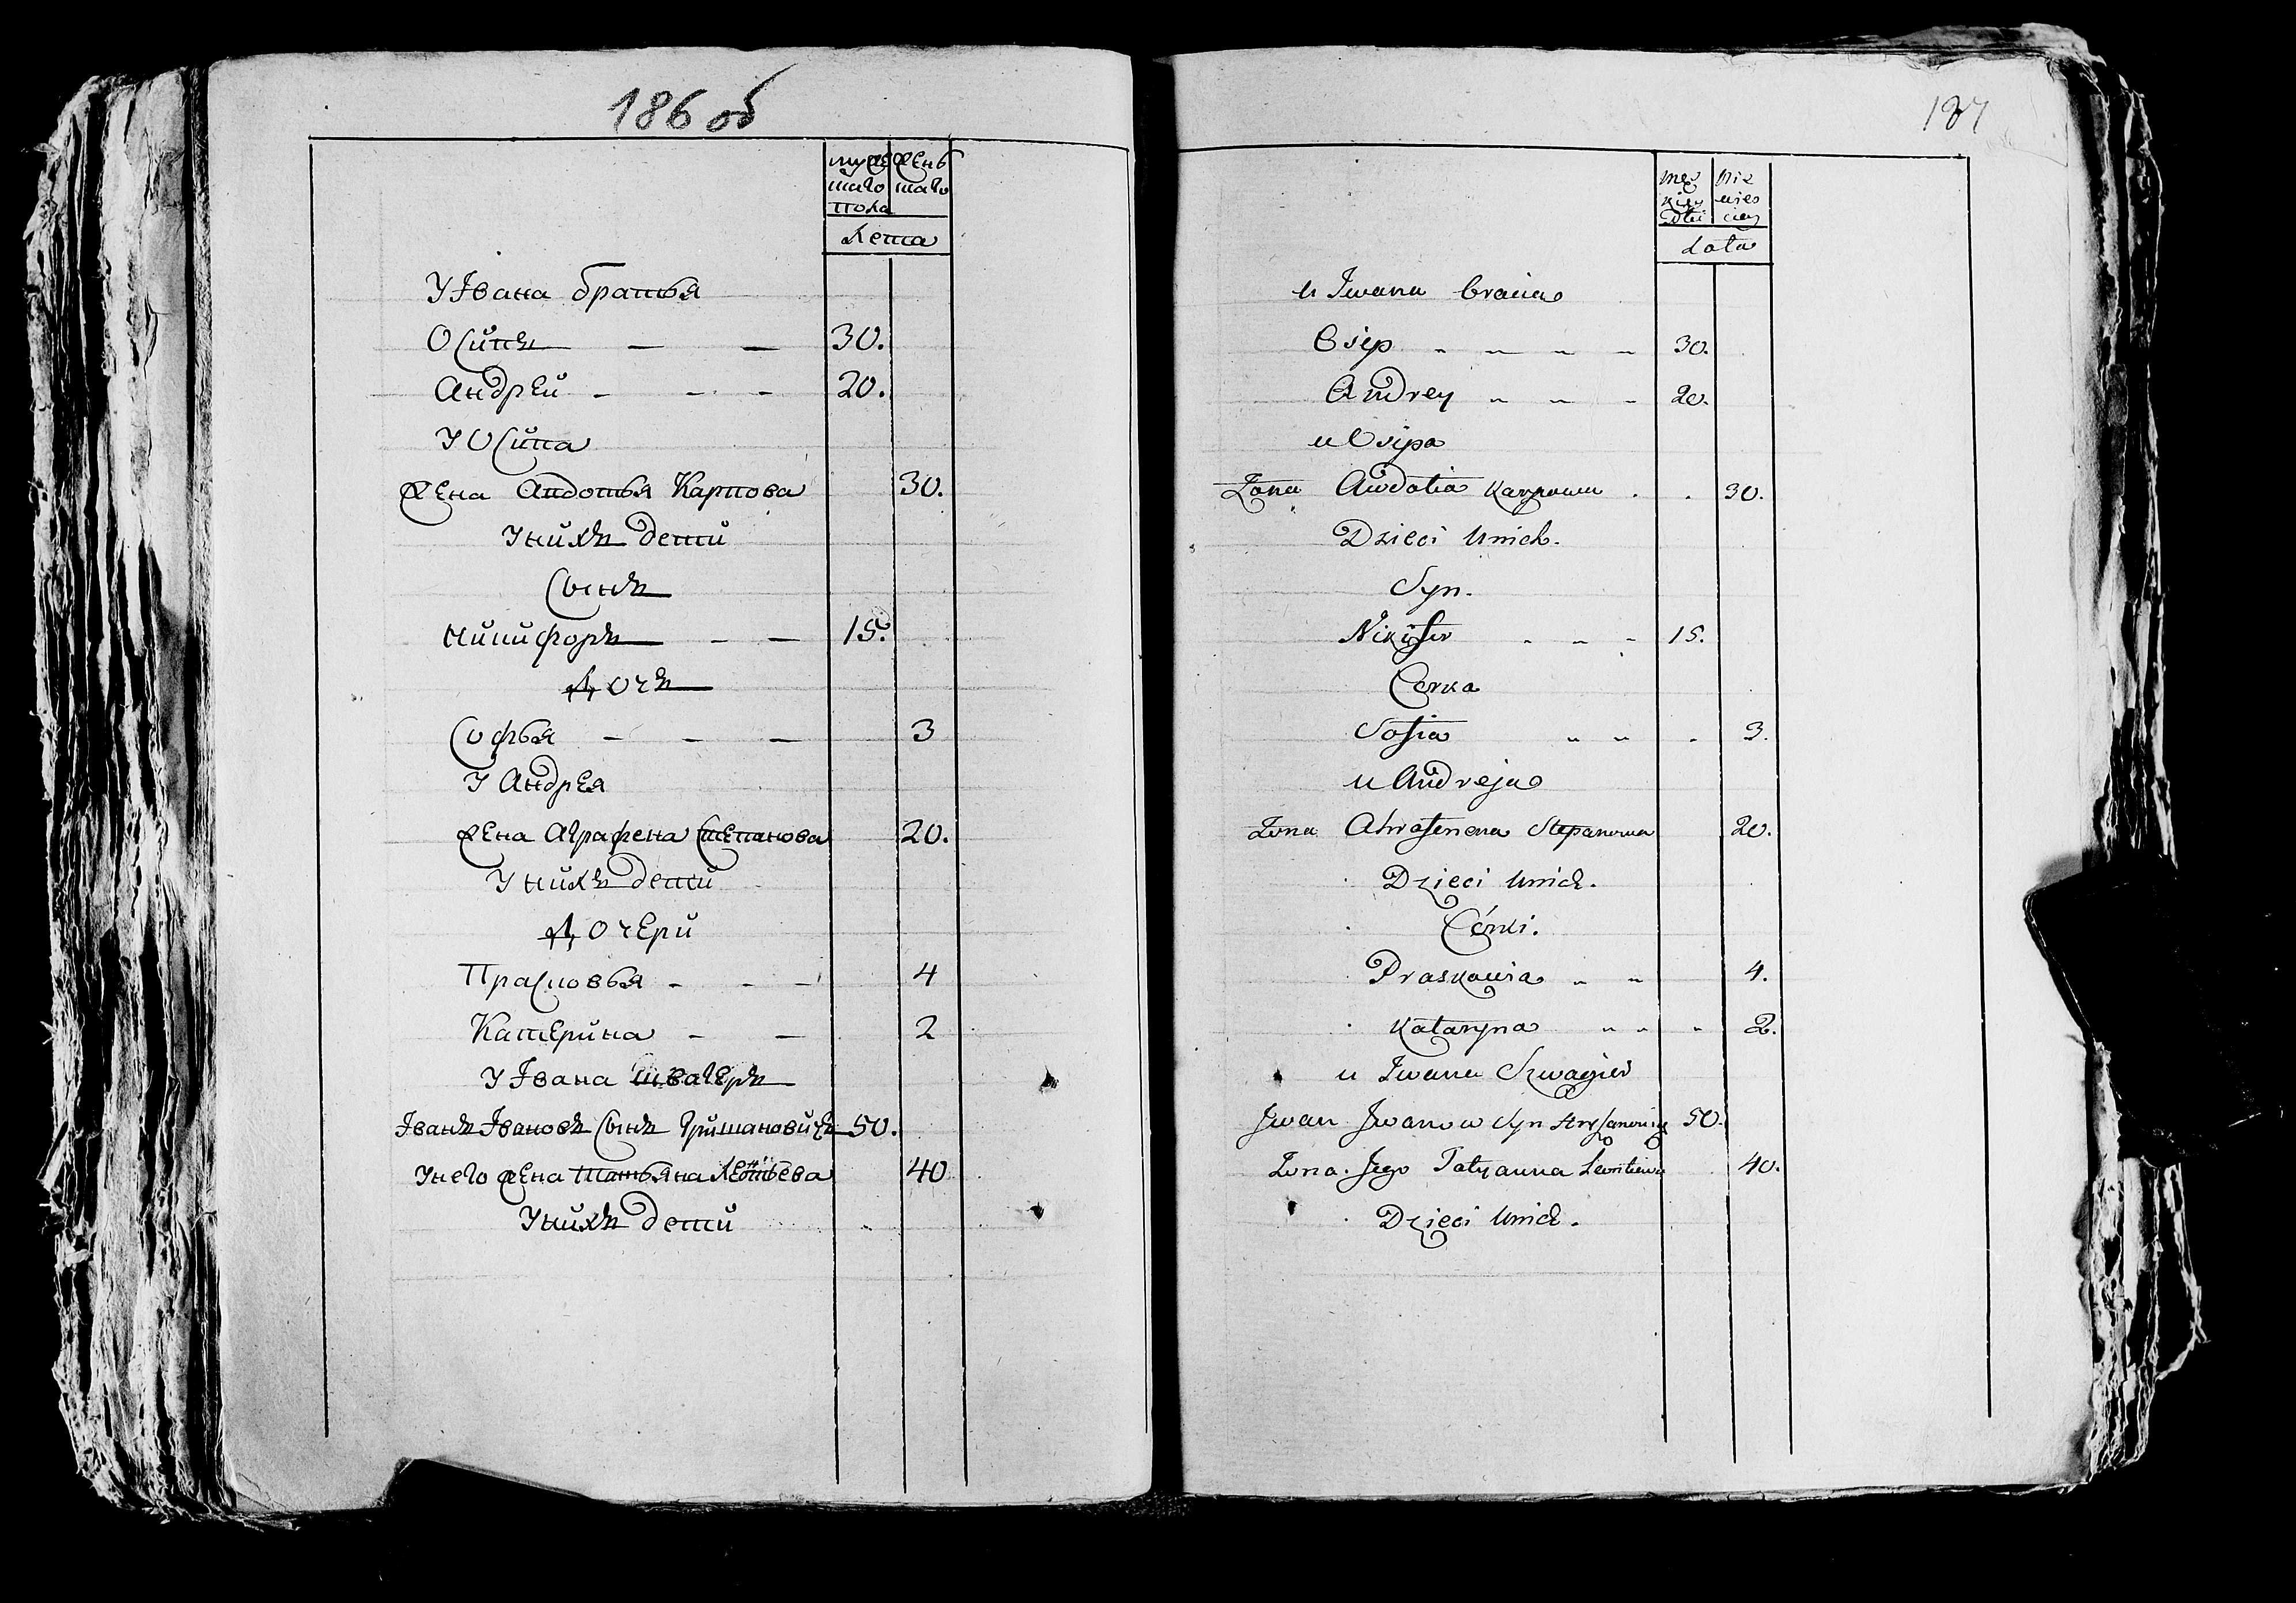 186 об
муже жень
скаго скаго
пола
лета
У Iвана братья
Осипъ — — 30.
Андрей - - - 20.
У Осипа
жена Авдотья Карпова 30.
У нихъ дети
Сынъ
Никифоръ — — 15.
Дочъ
Софья — — — 3
У Андрея
жена Аграфена Степанова 20.
У нихъ дети
Дочери
Прасковья - - - 4
Катерина — — 2
У Iвана швагеръ
Iванъ Iвановъ Сынъ Гришановичъ 50.
У него жена Татьяна Леонтьева 40
У нихъ дети
187
lata
u Iwana bracia
Osip 30.
Andrey 20.
u Osipa
Zona Awdotia Karpowa 30.
Dzieci Unich.
Syn.
Nikifor 15.
Corka
Sofia 3.
u Andreja
Zona Ahrafenena Stepanowa 20.
Dzieci Unich.
Córki.
Praskowia 4.
Kataryna 2.
u Iwana Szwagier
Jwan Jwanow Syn 50.
Zona Jego Tatyanna Leontiewa 40.
Dzieci Unich.